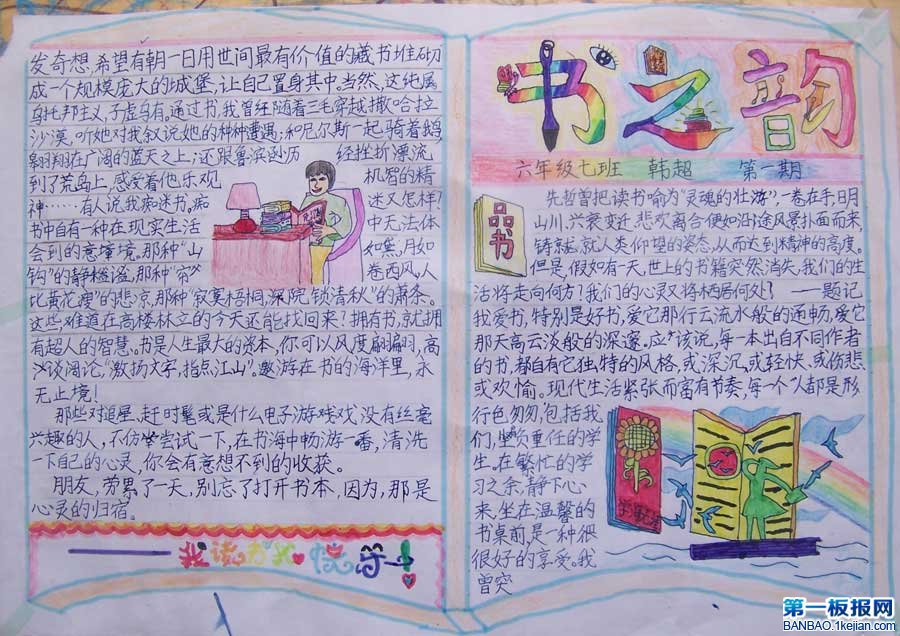 书之韵
六年级七班 韩超 第一期
品书
先哲曾把读书喻为“灵魂的壮游”,一卷在手,日月
山川,兴衰变迁,悲欢离合便如沿途风景扑面而来,
铸就人类仰望的姿态,从而达到精神的高度。
但是,假如有一天,世上的书籍突然消失,我们的生
活将走向何方?我们的心灵又将栖居何处? ——题记
我爱书,特别是好书,爱它那行云流水般的通畅,爱它
那天高云淡般的深邃。应该说,每一本出自不同作者
的书,都自有它独特的风格,或深沉,或轻快、或伤悲
或欢愉。现代生活紧张而富有节奏,每一个人都是形
行色匆匆,包括我
们,负重任的学
生。在繁忙的学
习之余,静下心
来,坐在温馨的
书桌前,是一种很
很好的享受。我
曾突
发奇想,希望有朝一日用世间最有价值的藏书堆砌
成一个规模庞大的城堡,让自己置身其中.当然,这纯属
乌托邦主义,子虚乌有,通过书,我曾经随着三毛穿越撒哈拉
沙漠,听她对我叙说她的种种遭遇;和尼尔斯一起骑着鹅
翱翔在广阔的蓝天之上;还跟鲁滨逊历 经挫折漂流
到了荒岛上,感受着他乐观 机智的精
神……有人说我痴迷书。痴 迷又怎样?
书中自有一种在现实生活 中无法体
会到的意境。那种“山 如黛,月如
钩”的静谧,那种“帘 卷西风,人
比黄花瘦”的悲凉,那种“寂寞梧桐,深院,锁清秋”的萧条。
这些难道在高楼林立的今天还能找回来?拥有书,就拥
有超人的智慧。书是人生最大的资本,你可以风度翩翩,高
谈阔论,“激扬文字,指点江山”。遨游在书的海洋里,永
无止境!
那些对追星、赶时髦或是什么电子游戏戏没有丝毫
兴趣的人,不仿尝试一下,在书海中畅游一番,清洗
一下自己的心灵,你会有意想不到的收获。
朋友,劳累了一天,别忘了打开书本,因为,那是
心灵的归宿。
我读书我
第一板报网
BANBAO.1kejian.com